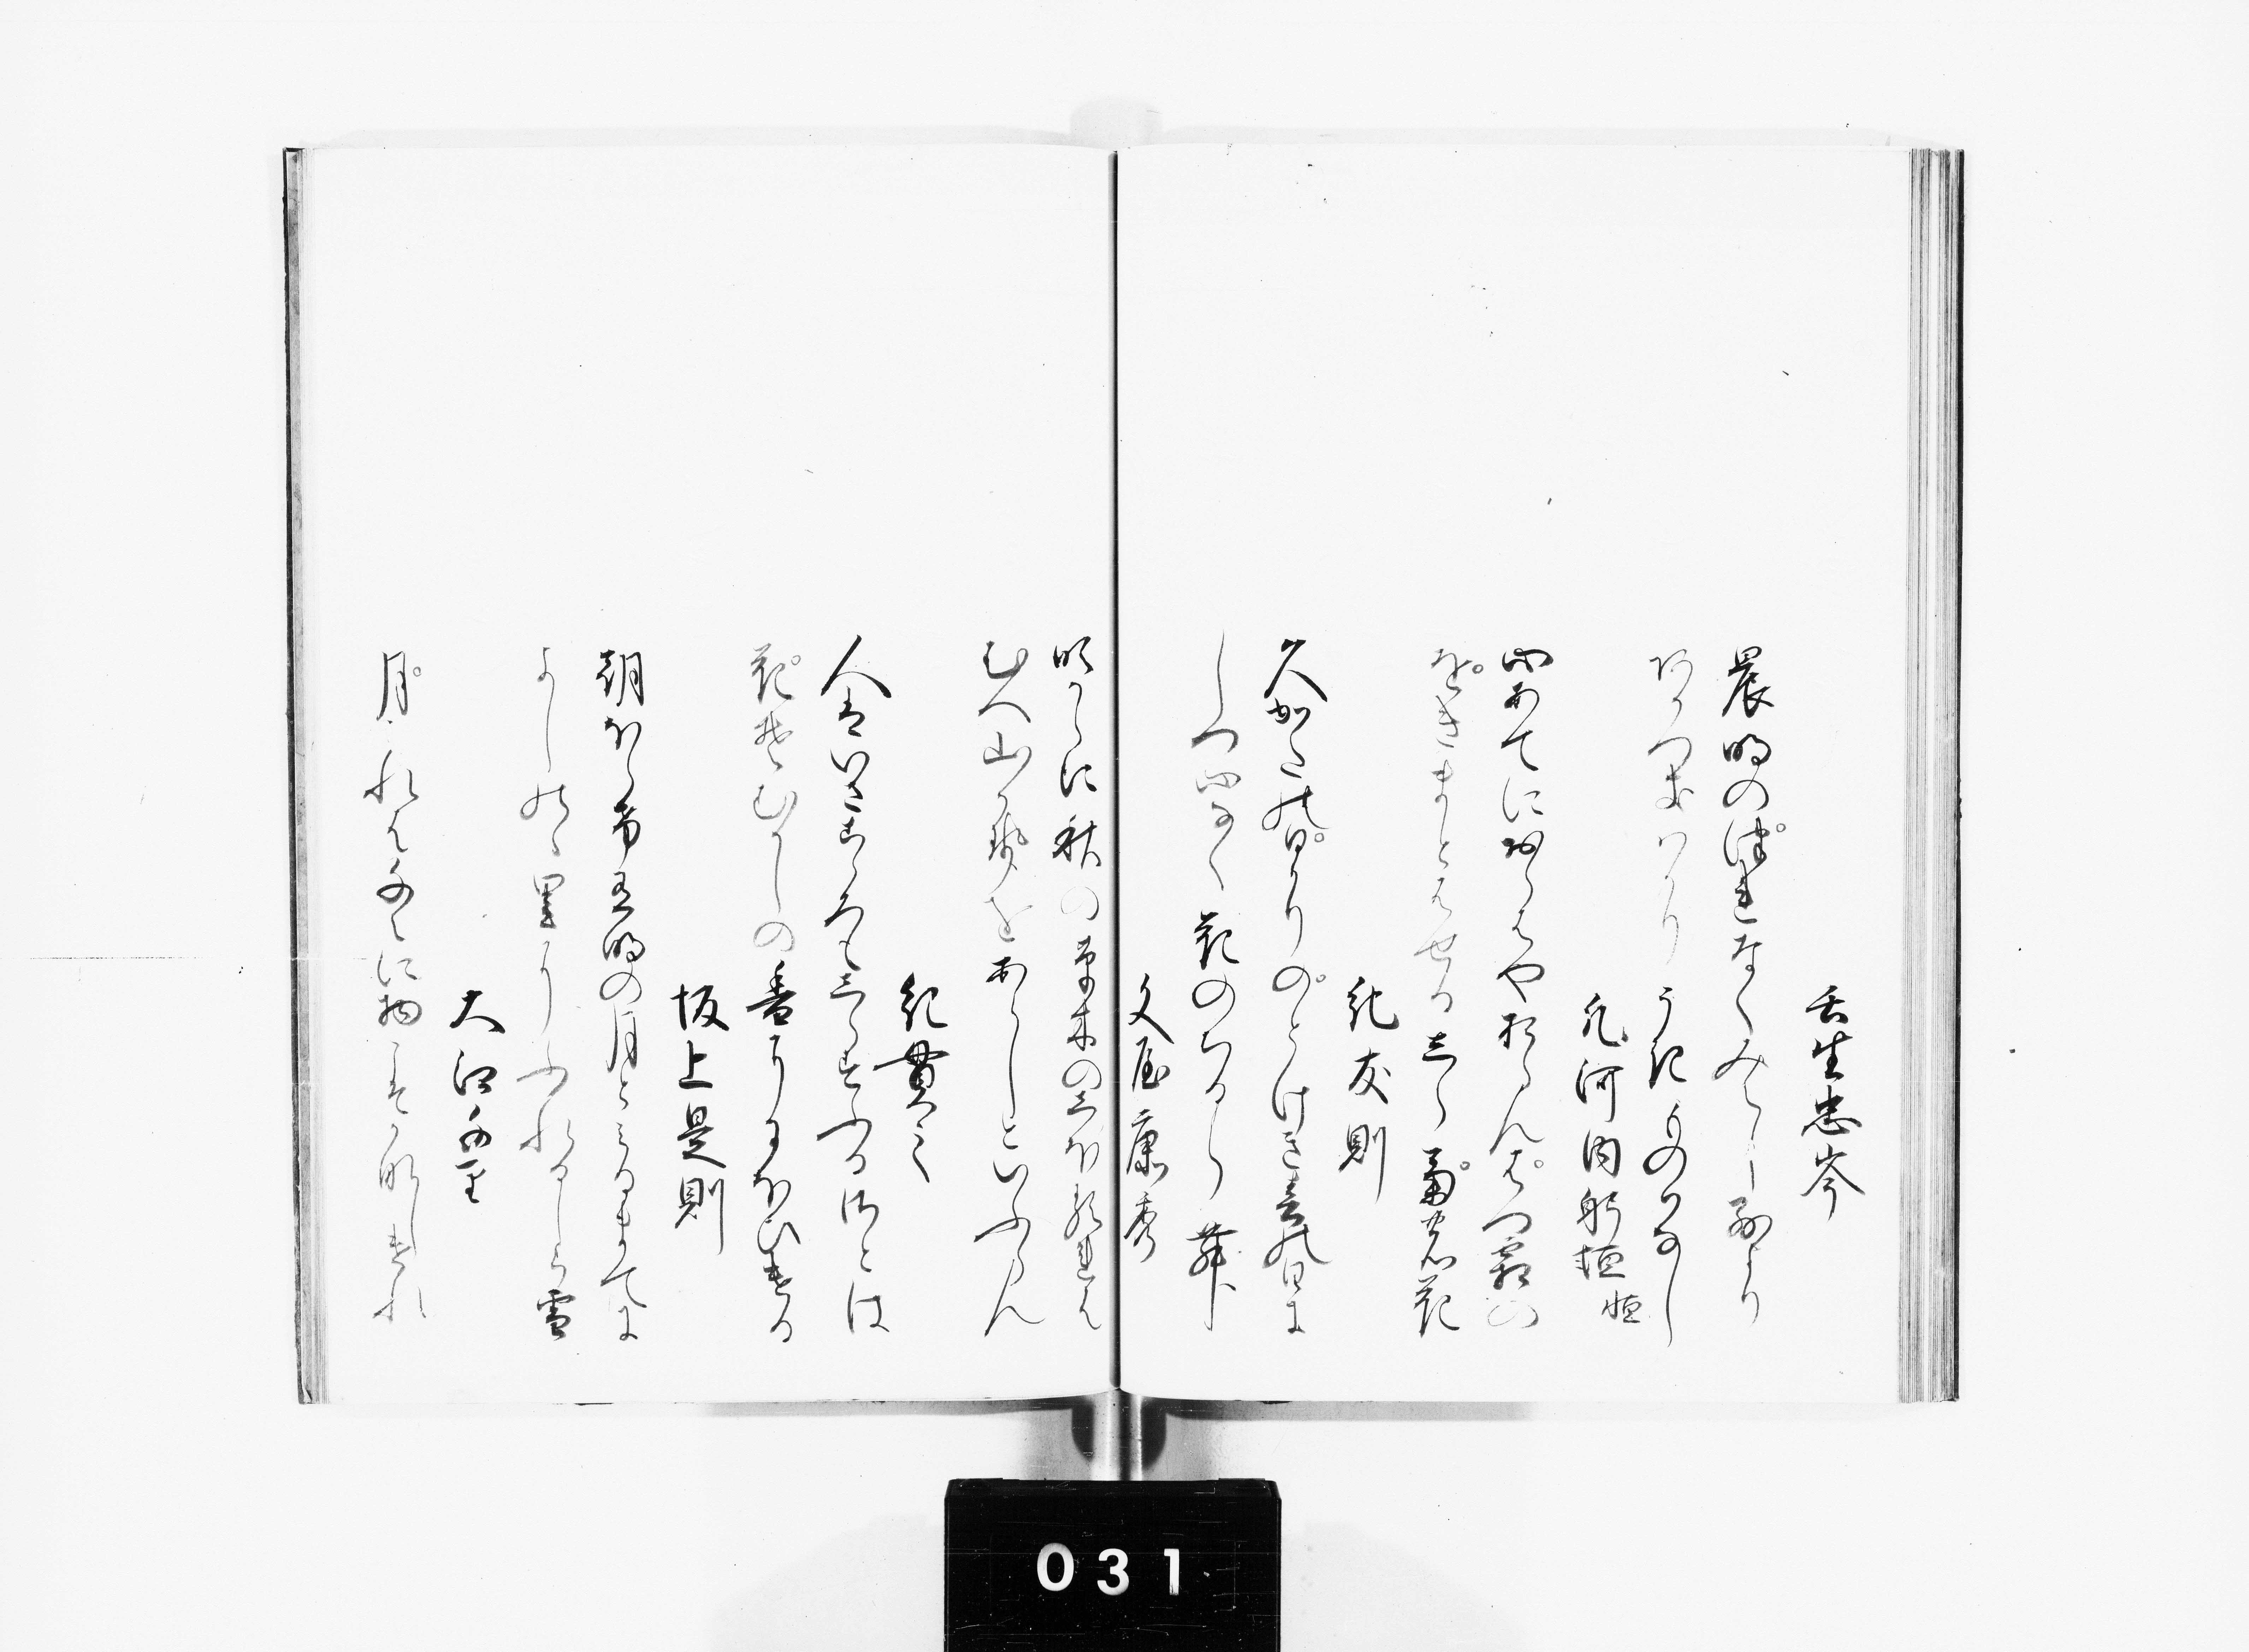 壬生忠岑
晨明のつれなくみえし別より
あかつきはかりうき物かなし
凡河内躬恒 恒
心あてにおらはや折らんはつ霜の
をきまとはせる志ら菊の花
紀友則
久かたの日かりのとけき春の日に
しつ心なく花のちるらむ
文屋康秀
吹からに秋の草木の志ほるれは
むへ山かせをあらしといふらん
紀貫之
人はいさこゝろも志らすふる里とは
花そむかしの香ににほひける
坂上是則
朝ほらけ有明の月とみるまてに
よしのゝ里にふれるしら雪
大江千里
月みれは千ゝに物こそかなしけれ
031